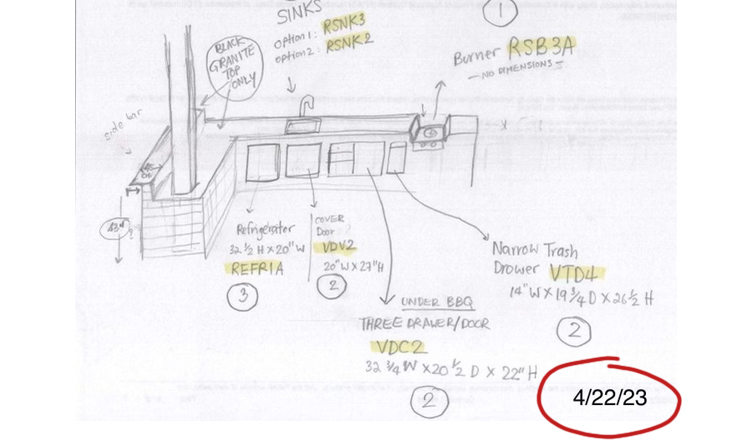 SINKS
option1: RSNK3
option2: RSNK2
1
Burner RSB3A
— NO DIMENSIONS —
BLACK
GRANITE
TOP
ONLY
side bar
Refrigerator
32 ½ H X 20" W
REFR1A
3
COVER
Door
VDV2
20" W X 27" H
2
UNDER BBQ
THREE DRAWER/DOOR
VDC2
32 ¾ W X 20 ½ D X 22" H
2
Narrow Trash
Drower VTD4
14" W X 19 ¾ D X 26 ½ H
2
4/22/23